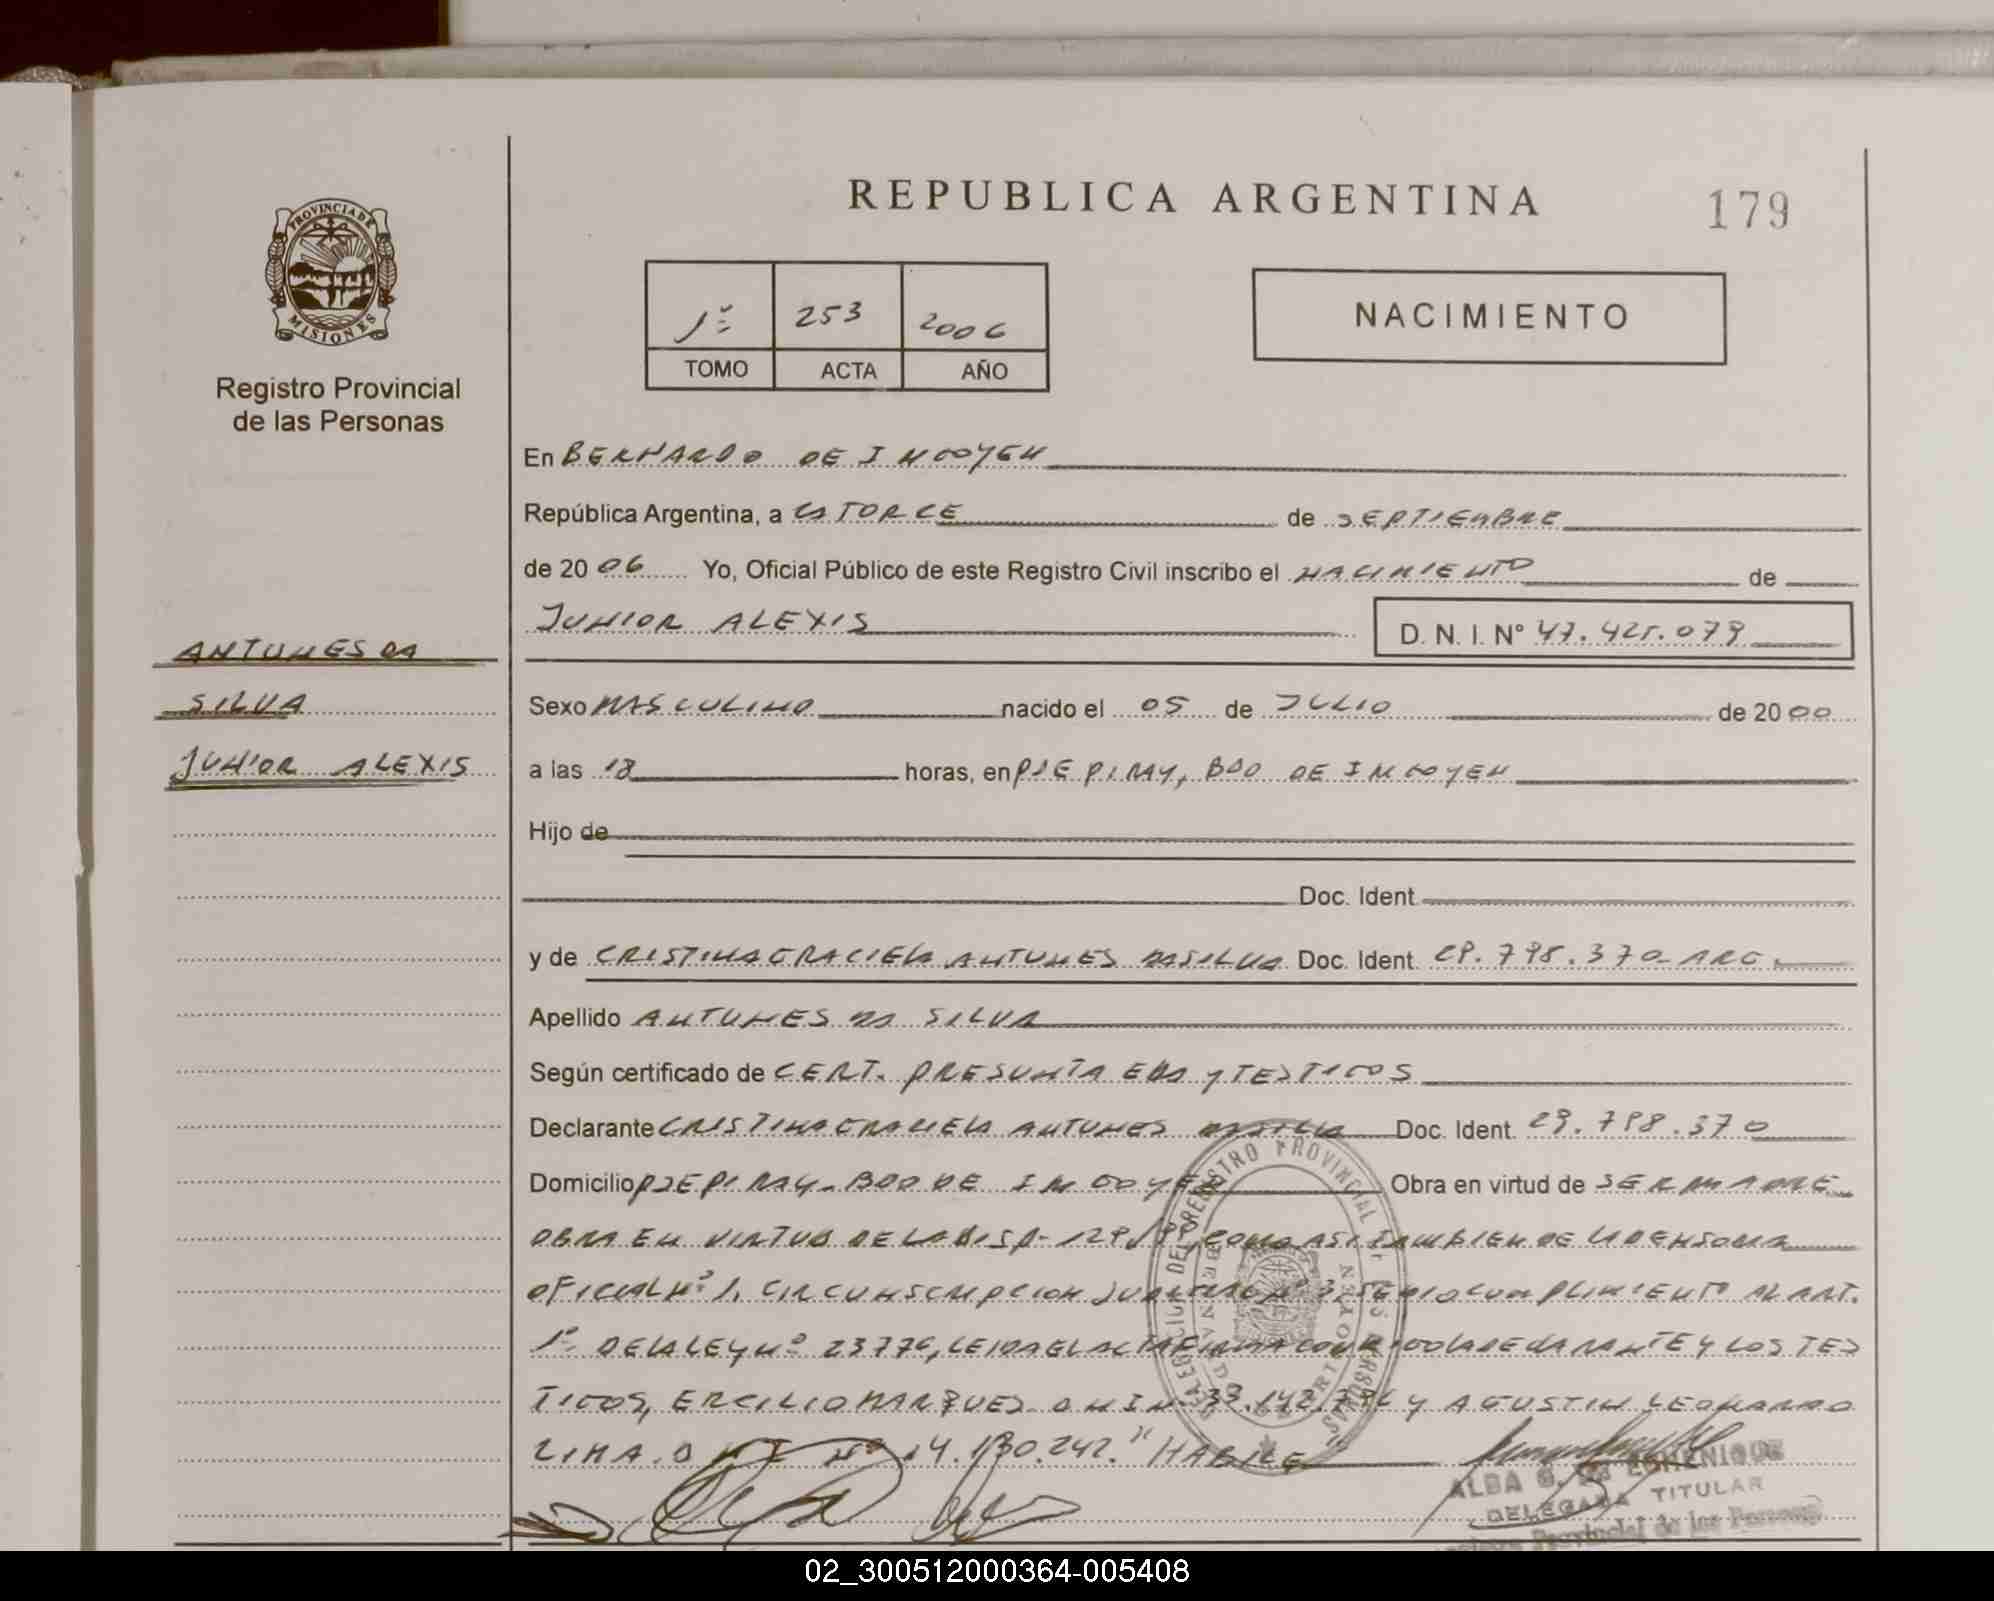 REPUBLICA ARGENTINA
179
PROVINCIA DE MISIONES
Registro Provincial
de las Personas
1º 253 2006
TOMO ACTA AÑO
NACIMIENTO
En BERNARDO DE IRIGOYEN
República Argentina, a CATORCE de SEPTIEMBRE
de 2006 Yo, Oficial Público de este Registro Civil inscribo el NACIMIENTO de
JUNIOR ALEXIS D. N. I. Nº 47.425.079
ANTUNES DA
SILVA
JUNIOR ALEXIS
Sexo MASCULINO nacido el 05 de JULIO de 2000
a las 18 horas, en PJE PIRAY, BDO DE IRIGOYEN
Hijo de
Doc. Ident.
y de CRISTINA GRACIELA ANTUNES DA SILVA Doc. Ident. 29.798.370 ARG.
Apellido ANTUNES DA SILVA
Según certificado de CERT. PRESUNTA EDAD y TESTIGOS
Declarante CRISTINA GRACIELA ANTUNES DA SILVA Doc. Ident. 29.798.370
Domicilio PJE PIRAY. BDO DE IRIGOYEN Obra en virtud de SER MADRE
OBRA EN VIRTUD DE LA DISP. 129/99, COMO ASI TAMBIEN DE LA DEFENSORIA
OFICIAL Nº 1. CIRCUNSCRIPCION JUDICIAL Nº 3, SE DIO CUMPLIMIENTO AL ART.
1º DE LA LEY Nº 23776, LEIDA EL ACTA FIRMA CONMIGO LA DECLARANTE Y LOS TES
TIGOS, ERCILIO MARQUES DNI Nº 33.142. Y AGUSTIN LEONARDO
LIMA. DNI Nº 14.130.242. "HABILE"
DELEGACION DEL REGISTRO PROVINCIAL DE LAS PERSONAS
BERNARDO DE IRIGOYEN
ALBA G. DE ECHENIQUE
DELEGADA TITULAR
Registro Provincial de las Personas
02_300512000364-005408